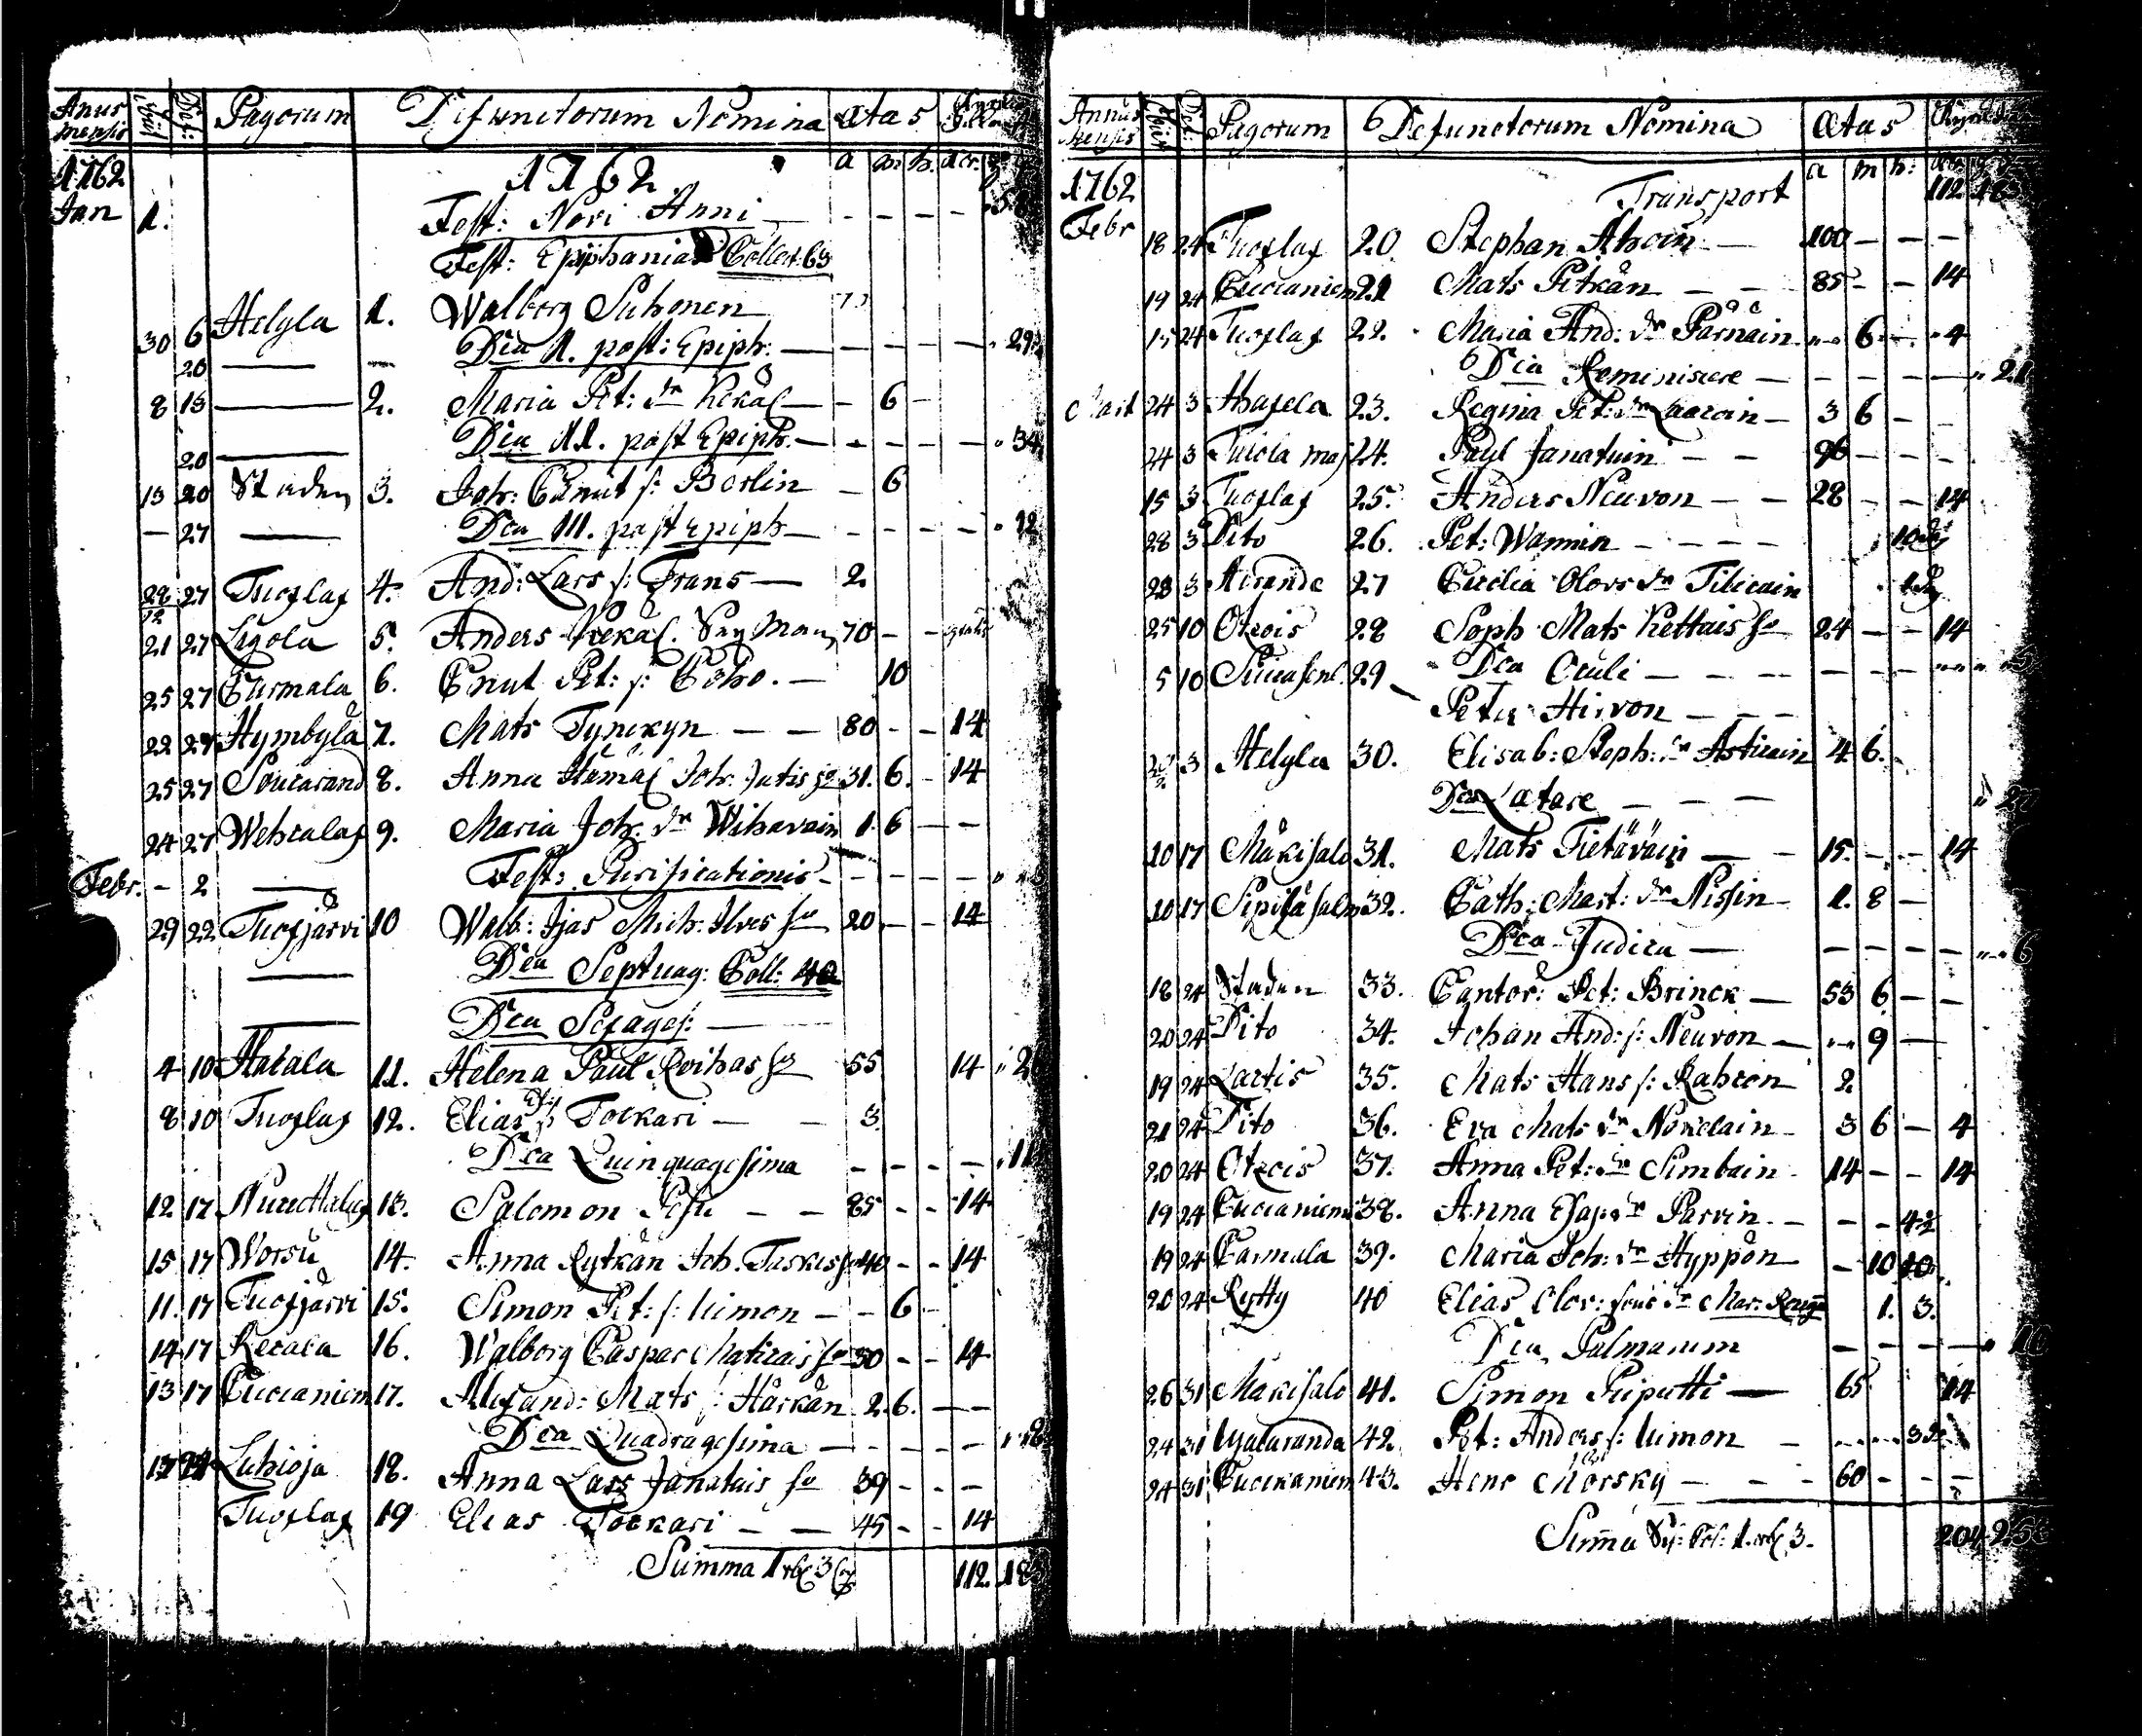 Anus mensis Pagorum Defunctorum Nomina ætas
1762 1762 a m. h. acr.
Jan 1. Fest: Novi Anni — — — — —
Fest: Epiphaniæ Collect 63
30 6 Helyla 1. Walborg Suhonen
20 — — Dca 1. post: Epiph: — — — — — 29
8 13 — 2. Maria Pet: dr Kekäl — — 6 —
20 — Dca 11. post Epiph. — — — — 34
13 20 Staden 3. Joh: Cknut s: Berlin — 6
— 27 — Dca 111. post Epiph — — — — — 12
28 27 Tuoslax 4. And: Lars s: Trans — 2.
12
21 27 Ligola 5. Anders Kekäl. 70 — — gratis
25 27 Curmala 6. Cnut Pet: s: Coho. — 10
22 27 Hymbylä 7. Mats Tynckyn — — 80 — — 14
25 27 Soucarand 8. Anna Hämäl Joh. Jutis ho 31. 6. — 14
24 27 Wehcalax 9. Maria Joh. dr Wihavain 1. 6 — —
Febr. — 2 — Fest: Purificationis — — — — —
29 22 Tuoxjärvi 10 Walb: Ijas Mich: Ilves ho 20 — — 14
— Dca Septuag: Coll: 40
— Dca Sexages: —
4 10 Hacala 11. Helena Paul Roihas ho 55 14
8 10 Tuoslax 12. Elias Tockari — — 3
Dca Quinquagesima — — — — 11
12 17 13. Salomon — — 85 — — 14
15 17 Worsu 14. Anna Rytkän Joh. Taskis ho 40 — — 14
11. 17 Tuoxjärvi 15. Simon Pet: s: Kimon — — 6 —
14 17 Recala 16. Walborg Caspar Maticais ho 50 — — 14
13 17 Cuccaniem 17. Alexand: Mats s: Härkän 2. 6. — —
Dca Quadragesima — — — — —
17 24 Luhioja 18. Anna Lars Janatuis ho 39 — — —
Tuoslax 19 Elias Tockari — — 45 — — 14
Summa 1 rbl 3 112. 183
Annus Mensis Pagorum Defunctorum Nomina Ætas
1762 Transport a m h: 112. 183
Febr 18 24 Tuoslax 20. Stephan Ahoin — 100 — — —
19 24 Cuccaniem 21 Mats Pitkän — — 85 — — 14
15 24 Tuoslax 22. Maria And: dr Pärnäin — 6 — 4
Dca Reminiscere — — — — — 21
Mart 24 3 Haxela 23. Regina Pet: dr Laacain — 3 6 — —
24 3 Tuiola maj 24. Paul Janatuin — — 96 — — —
15 3 Tuoslax 25. Anders Neuvon — — 28 — — 14
28 3 Dito 26. Pet: Wannin — — — — 10
28 3 Airande 27 Cicilia Olovs dr Tilicain 1
25 10 Otzois 28 Soph Mats Kettais ho 24 — — 14
5 10 29 Dca Oculi — — — — — — —
Peter Hirvon — — —
3 Helyla 30. Elisab: Steph: dr Asticain 4 6.
Dca Lætare — — —
10 17 Mäkisalo 31. Mats Tietäväin — — 15. — — 14
10 17 Sipiläsalm 32. Cath: Mart: dr Nissin — 1. 8 —
Dca Judica — — — — — 6
18 24 Staden 33. Cantor: Pet: Brinck — 53 6 — —
20 24 Dito 34. Johan And: s: Neuvon — 9 —
19 24 Lactis 35. Mats Hans s: Rahcon 2
21 24 Dito 36. Eva Mats dr 3 6 — 4
20 24 Otzois 37. Anna Pet: dr Simbain — 14 — — 14
19 24 Cuccaniem 38. Anna Esaj: dr Parvin. — — — 4½
19 24 Carmala 39. Maria Joh: dr Hyppön — 10 10
20 24 Rytty 40 Elias Olov: 1. 3.
Dca Palmarum — — — — — 10
26 31 Mäkisalo 41. Simon Piiputti — 65 14
24 31 42. Pet: Anders s: Kimon — 3
24 31 Cuccaniem 43. Henr Mörsky — — — 60 — — —
Sum̄a 1. rbl 3. 204 253